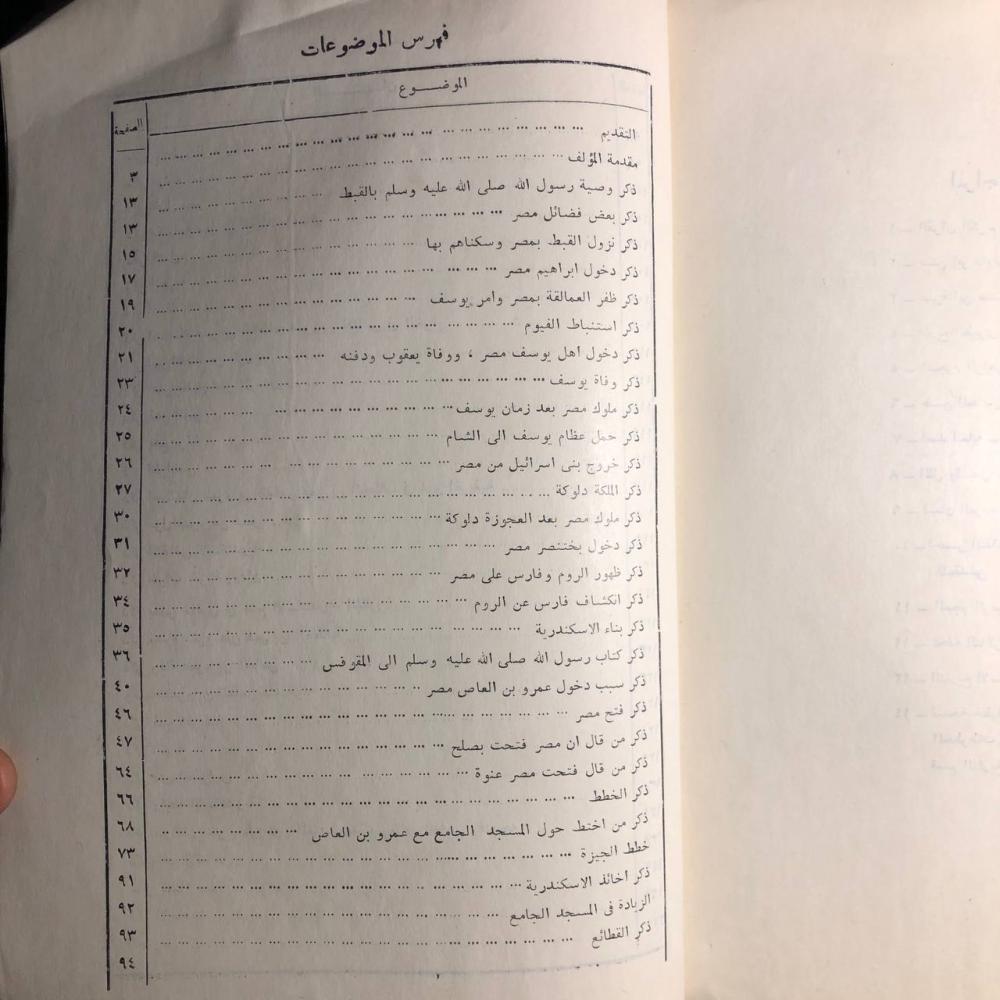 فهرس الموضوعات
الموضـــوع الصفحة
التقديم ٣
مقدمة المؤلف ١٣
ذكر وصية رسول الله صلى الله عليه وسلم بالقبط ١٣
ذكر بعض فضائل مصر ١٥
ذكر نزول القبط بمصر وسكناهم بها ١٧
ذكر دخول ابراهيم مصر ١٩
ذكر ظفر العمالقة بمصر وامر يوسف ٢٠
ذكر استنباط الفيوم ٢١
ذكر دخول اهل يوسف مصر ، ووفاة يعقوب ودفنه ٢٣
ذكر وفاة يوسف ٢٤
ذكر ملوك مصر بعد زمان يوسف ٢٥
ذكر حمل عظام يوسف الى الشام ٢٦
ذكر خروج بنى اسرائيل من مصر ٢٧
ذكر الملكة دلوكة ٣٠
ذكر ملوك مصر بعد العجوزة دلوكة ٣١
ذكر دخول بختنصر مصر ٣٢
ذكر ظهور الروم وفارس على مصر ٣٤
ذكر انكشاف فارس عن الروم ٣٥
ذكر بناء الاسكندرية ٣٦
ذكر كتاب رسول الله صلى الله عليه وسلم الى المقوقس ٤٠
ذكر سبب دخول عمرو بن العاص مصر ٤٦
ذكر فتح مصر ٤٧
ذكر من قال ان مصر فتحت بصلح ٦٤
ذكر من قال فتحت مصر عنوة ٦٦
ذكر الخطط ٦٨
ذكر من اختط حول المسجد الجامع مع عمرو بن العاص ٧٣
خطط الجيزة ٩١
ذكر اخائذ الاسكندرية ٩٢
الزيادة فى المسجد الجامع ٩٣
ذكر القطائع ٩٤